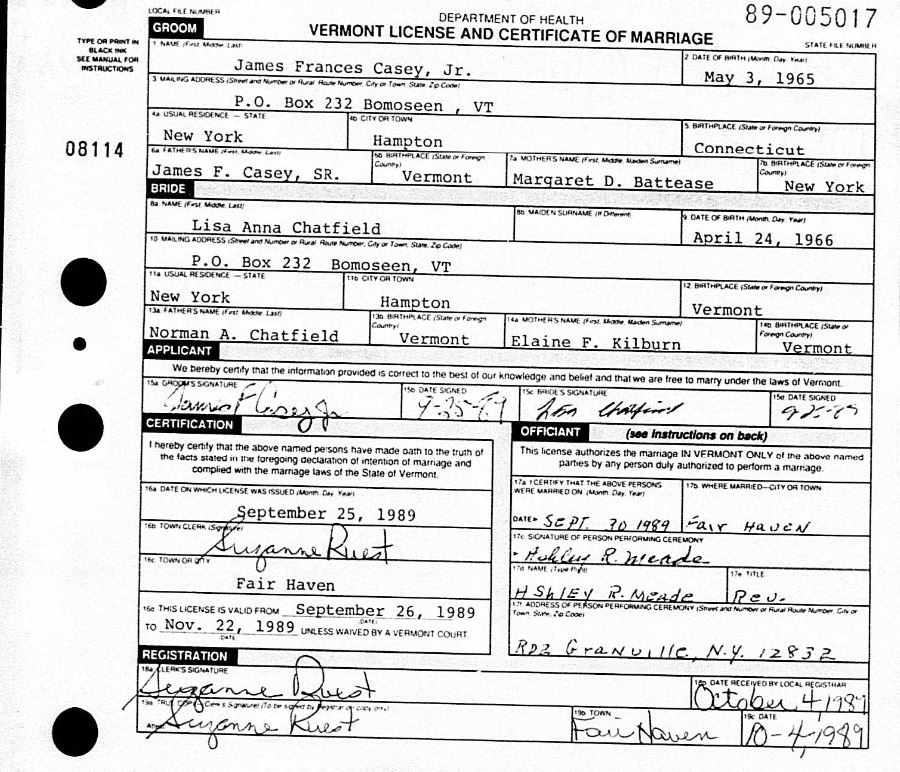 LOCAL FILE NUMBER
DEPARTMENT OF HEALTH
89-005017
VERMONT LICENSE AND CERTIFICATE OF MARRIAGE
STATE FILE NUMBER
TYPE OR PRINT IN
BLACK INK
SEE MANUAL FOR
INSTRUCTIONS
08114
GROOM
1 NAME (First, Middle, Last)
James Frances Casey, Jr.
2 DATE OF BIRTH (Month, Day, Year)
May 3, 1965
3 MAILING ADDRESS (Street and Number or Rural Route Number, City or Town, State, Zip Code)
P.O. Box 232 Bomoseen , VT
4a USUAL RESIDENCE — STATE
New York
4b CITY OR TOWN
Hampton
5 BIRTHPLACE (State or Foreign Country)
Connecticut
6a FATHER'S NAME (First, Middle, Last)
James F. Casey, SR.
6b BIRTHPLACE (State or Foreign
Country)
Vermont
7a MOTHER'S NAME (First, Middle, Maiden Surname)
Margaret D. Battease
7b BIRTHPLACE (State or
Foreign Country)
New York
BRIDE
8a NAME (First, Middle, Last)
Lisa Anna Chatfield
8b MAIDEN SURNAME (If Different)
9 DATE OF BIRTH (Month, Day, Year)
April 24, 1966
10 MAILING ADDRESS (Street and Number or Rural Route Number, City or Town, State, Zip Code)
P.O. Box 232 Bomoseen, VT
11a USUAL RESIDENCE — STATE
New York
11b CITY OR TOWN
Hampton
12 BIRTHPLACE (State or Foreign Country)
Vermont
13a FATHER'S NAME (First, Middle, Last)
Norman A. Chatfield
13b BIRTHPLACE (State or Foreign
Country)
Vermont
14a MOTHER'S NAME (First, Middle, Maiden Surname)
Elaine F. Kilburn
14b BIRTHPLACE (State or
Foreign Country)
Vermont
APPLICANT
We hereby certify that the information provided is correct to the best of our knowledge and belief and that we are free to marry under the laws of Vermont.
15a GROOM'S SIGNATURE
James F Casey Jr
15b DATE SIGNED
9-25-89
15c BRIDE'S SIGNATURE
Lisa Chatfield
15d DATE SIGNED
CERTIFICATION
I hereby certify that the above named persons have made oath to the truth of
the facts stated in the foregoing declaration of intention of marriage and
complied with the marriage laws of the State of Vermont.
16a DATE ON WHICH LICENSE WAS ISSUED (Month, Day, Year)
September 25, 1989
16b TOWN CLERK (Signature)
Suzanne Ruest
16c TOWN OR CITY
Fair Haven
16d THIS LICENSE IS VALID FROM September 26, 1989
(DATE)
TO Nov. 22, 1989 UNLESS WAIVED BY A VERMONT COURT.
DATE
OFFICIANT (see instructions on back)
This license authorizes the marriage IN VERMONT ONLY of the above named
parties by any person duly authorized to perform a marriage.
17a I CERTIFY THAT THE ABOVE PERSONS
WERE MARRIED ON (Month, Day, Year)
DATE▸ SEPT. 30 1989
17b WHERE MARRIED—CITY OR TOWN
Fair Haven
17c SIGNATURE OF PERSON PERFORMING CEREMONY
Ashley R. Meade
17d NAME (Type/Print)
AShley R. Meade
17e TITLE
Rev.
17f ADDRESS OF PERSON PERFORMING CEREMONY (Street and Number or Rural Route Number, City or
Town, State, Zip Code)
RD2 Granville, N.Y. 12832
REGISTRATION
18a CLERK'S SIGNATURE
Suzanne Ruest
18b DATE RECEIVED BY LOCAL REGISTRAR
October 4, 1989
19a TRUE COPY (Clerk's Signature) (To be signed by Registrar on copy only)
Suzanne Ruest
19b TOWN
Fair Haven
19c DATE
10-4-1989